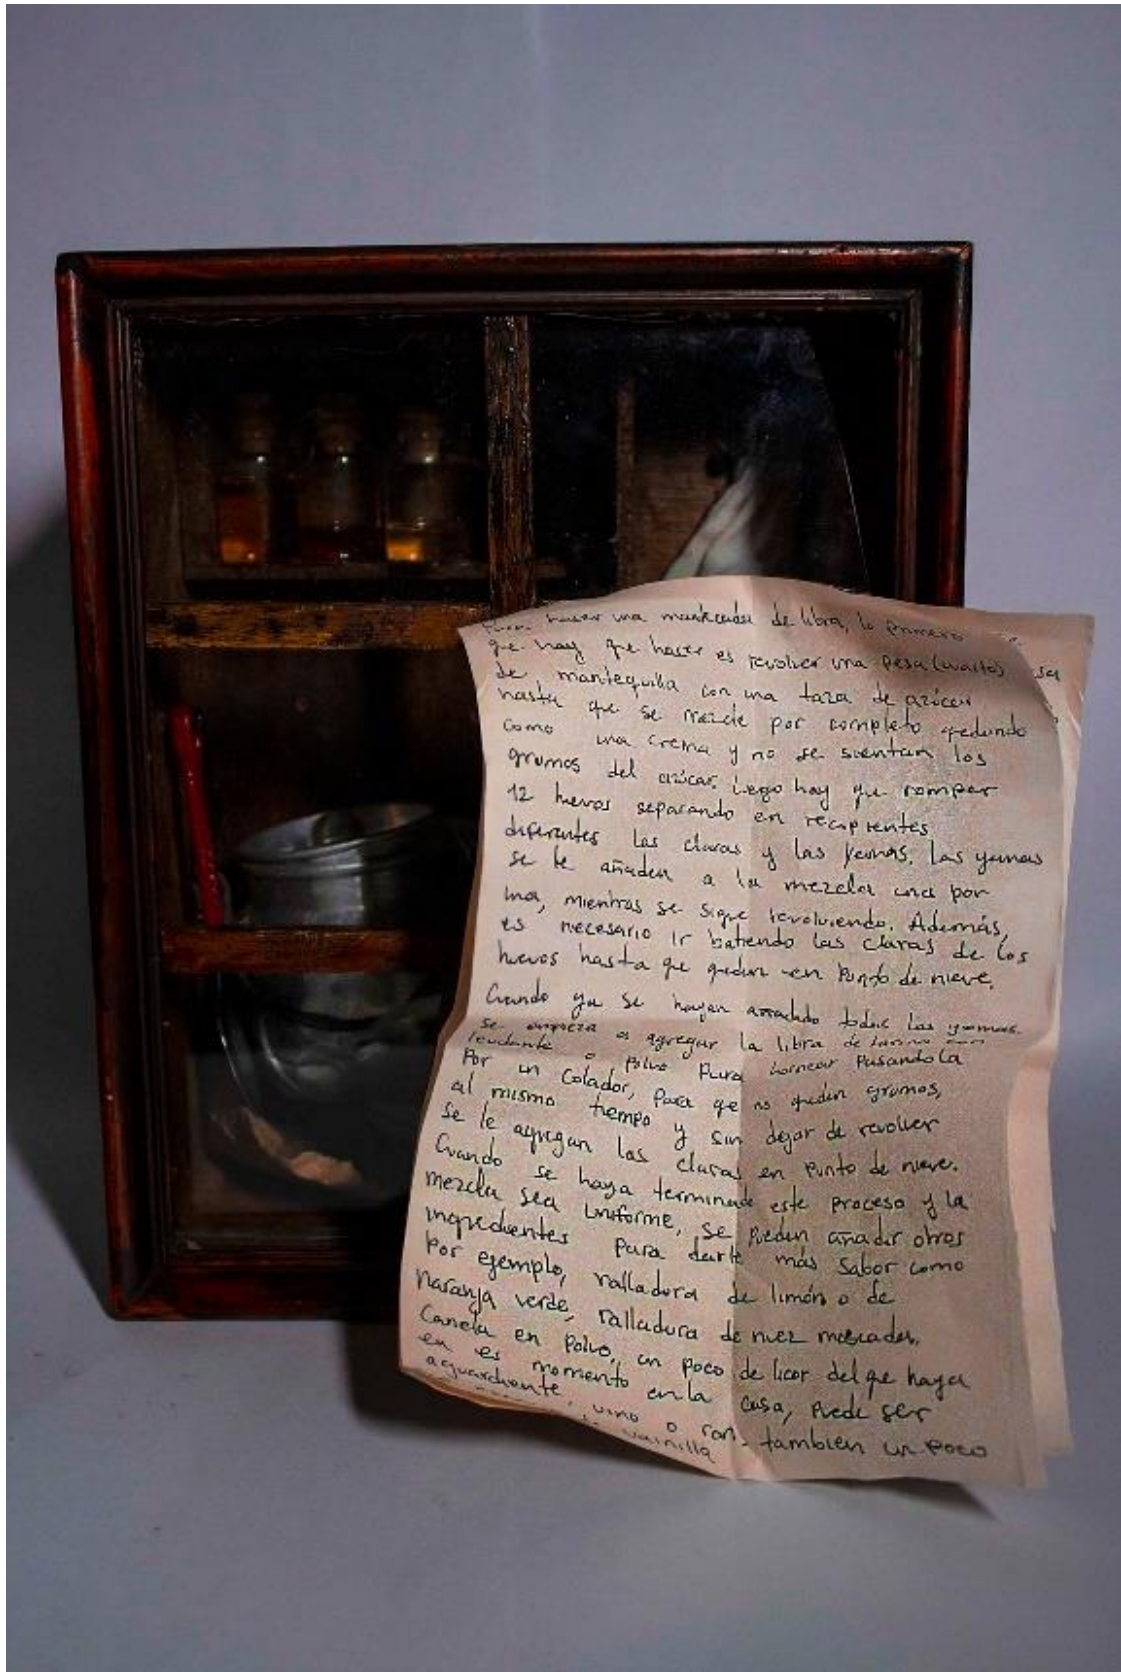 hacer una mantecada de libra, lo primero
que hay que hacer es revolver una pesa (cuarto)
de mantequilla con una taza de azúcar
hasta que se mezcle por completo quedando
como una crema y no se sientan los
grumos del azúcar. Luego hay que romper
12 huevos separando en recipientes
diferentes las claras y las yemas, las yemas
se le añaden a la mezcla una por
una, mientras se sigue revolviendo. Además,
es necesario ir batiendo las claras de los
huevos hasta que queden en punto de nieve.
Cuando ya se hayan todas las yemas.
se empieza a agregar la libra de
leudante o polvo para hornear pasandola
Por un Colador, para que no queden grumos,
al mismo tiempo y sin dejar de revolver
se le agregan las claras en punto de nieve.
Cuando se haya terminado este proceso y la
mezcla sea uniforme, se pueden añadir otros
ingredientes para darle más sabor como
por ejemplo, ralladura de limón o de
naranja verde, ralladura de nuez moscada,
Canela en polvo, un poco de licor del que haya
en es momento en la casa, puede ser
aguardiente, vino o ron, tambien un poco
vainilla